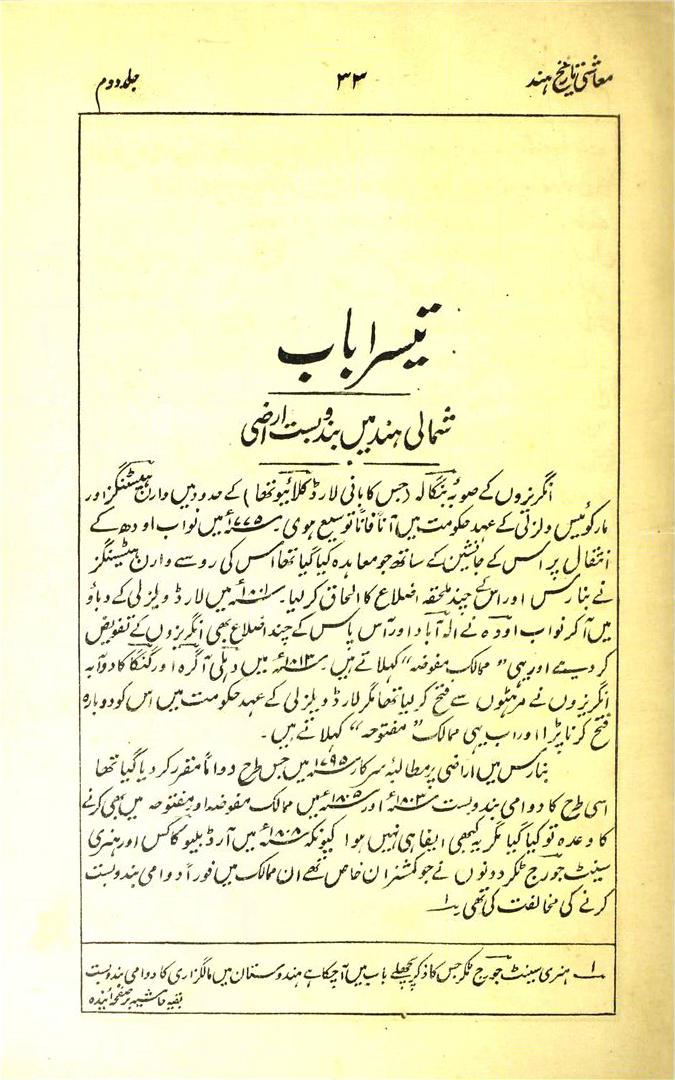 معاشی تاریخ ہند ۳۳ جلد دوم
تیسرا باب
شمالی ہند میں بندوبست اراضی
انگریزوں کے صوبۂ بنگالہ (جس کا بانی لارڈ کلائیو تھا) کے حدود میں وارن ہیسٹنگز اور
مارکوئیس ولزلی کے عہد حکومت میں آناً فاناً توسیع ہوی۔ ۱۷۷۵ء میں نواب اودھ کے
انتقال پر اس کے جانشین کے ساتھ جو معاہدہ کیا گیا تھا اس کی رو سے وارن ہیٹینگز
نے بنارس اور اس کے چند ملحقہ اضلاع کا الحاق کر لیا۔ ۱۸۰۱ء میں لارڈ ویلزلی کے دباؤ
میں آکر نواب اودہ نے الہ آباد اور آس پاس کے چند اضلاع بھی انگریزوں کے تفویض
کر دیے اور یہی "ممالک مفوضہ" کہلاتے ہیں۔ ۱۸۰۳ء میں دہلی آگرہ اور گنگا کا دوآبہ
انگریزوں نے مرہٹوں سے فتح کر لیا تھا مگر لارڈ ویلزلی کے عہد حکومت میں اس کو دوبارہ
فتح کرنا پڑا اور اب یہی ممالک "مفتوحہ" کہلاتے ہیں۔
بنارس میں اراضی پر مطالبۂ سرکار ۱۷۹۵ء میں جس طرح دواماً مقرر کر دیا گیا تھا
اسی طرح کا دوامی بندوبست ۱۸۰۳ء اور ۱۸۰۵ء میں ممالک مفوضہ اور مفتوحہ میں بھی کرنے
کا وعدہ تو کیا گیا مگر یہ کبھی ایفا ہی نہیں ہوا کیونکہ ۱۸۰۸ء میں آر ڈبلیو کاکس اور ہنری
سینٹ جورج ٹکر دونوں نے جو کمشنران خاص تھے ان ممالک میں فوراً دوامی بندوبست
کرنے کی مخالفت کی تھی۔ ۱
۱۔ ہنری سینٹ جورج ٹکر جس کا ذکر پچھلے باب میں آچکا ہے ہندوستان میں مالگزاری کا دوامی بندوبست
بقیہ حاشیہ بر صفحہ آیندہ